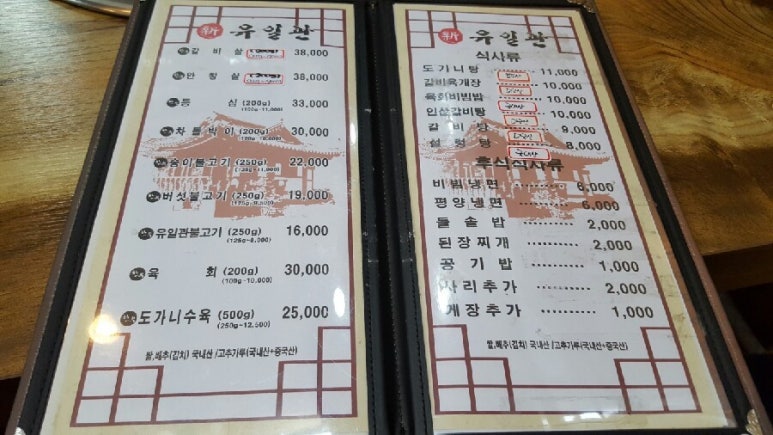 新 유일관
갈비살 38,000
안창살 38,000
등심 (200g) 33,000
차돌박이 (200g) 30,000
송이불고기 (250g) 22,000
버섯불고기 (250g) 19,000
유일관불고기 (250g) 16,000
(125g~8,000)
육 회 (200g) 30,000
도가니수육 (500g) 25,000
(250g~12,500)
쌀,배추(김치) 국내산 /고추가루(국내산+중국산)
新 유일관
식사류
도가니탕 11,000
갈비육개장 10,000
육회비빔밥 10,000
인삼갈비탕 10,000
갈비탕 9,000
설렁탕 8,000
후식식사류
비빔냉면 6,000
평양냉면 6,000
돌솥밥 2,000
된장찌개 2,000
공기밥 1,000
사리추가 2,000
게장추가 1,000
쌀,배추(김치) 국내산 /고추가루(국내산+중국산)